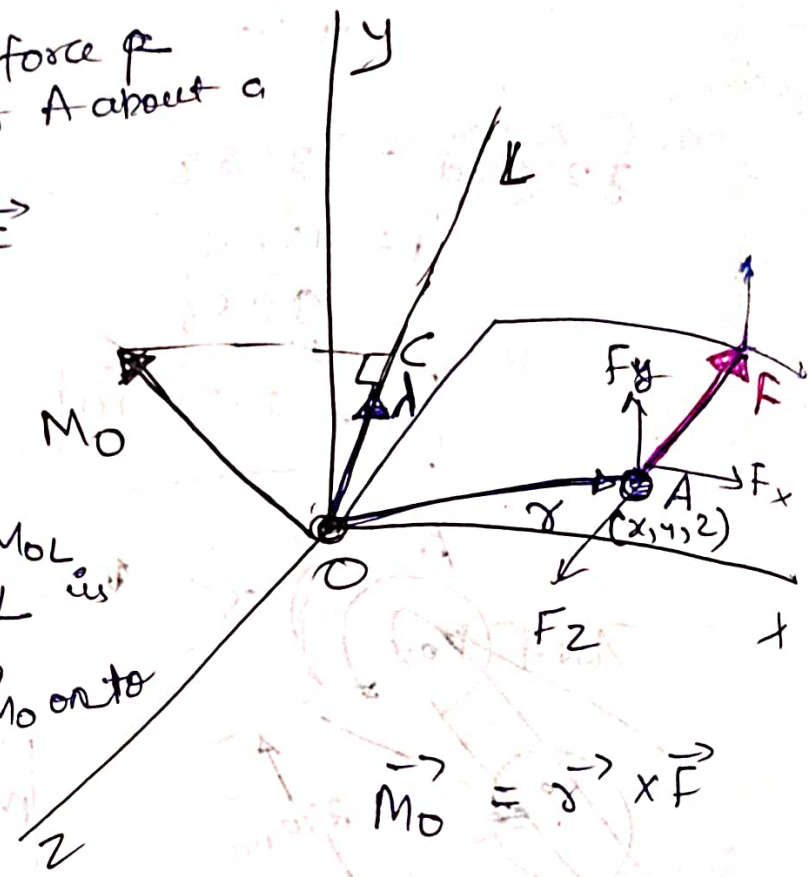 force F
A about a
y
L
C
λ
Fy
F
Mo
A
Fx
r
(x, y, z)
MOL
O
L is
Fz
x
Mo on to
z
Mo = r × F